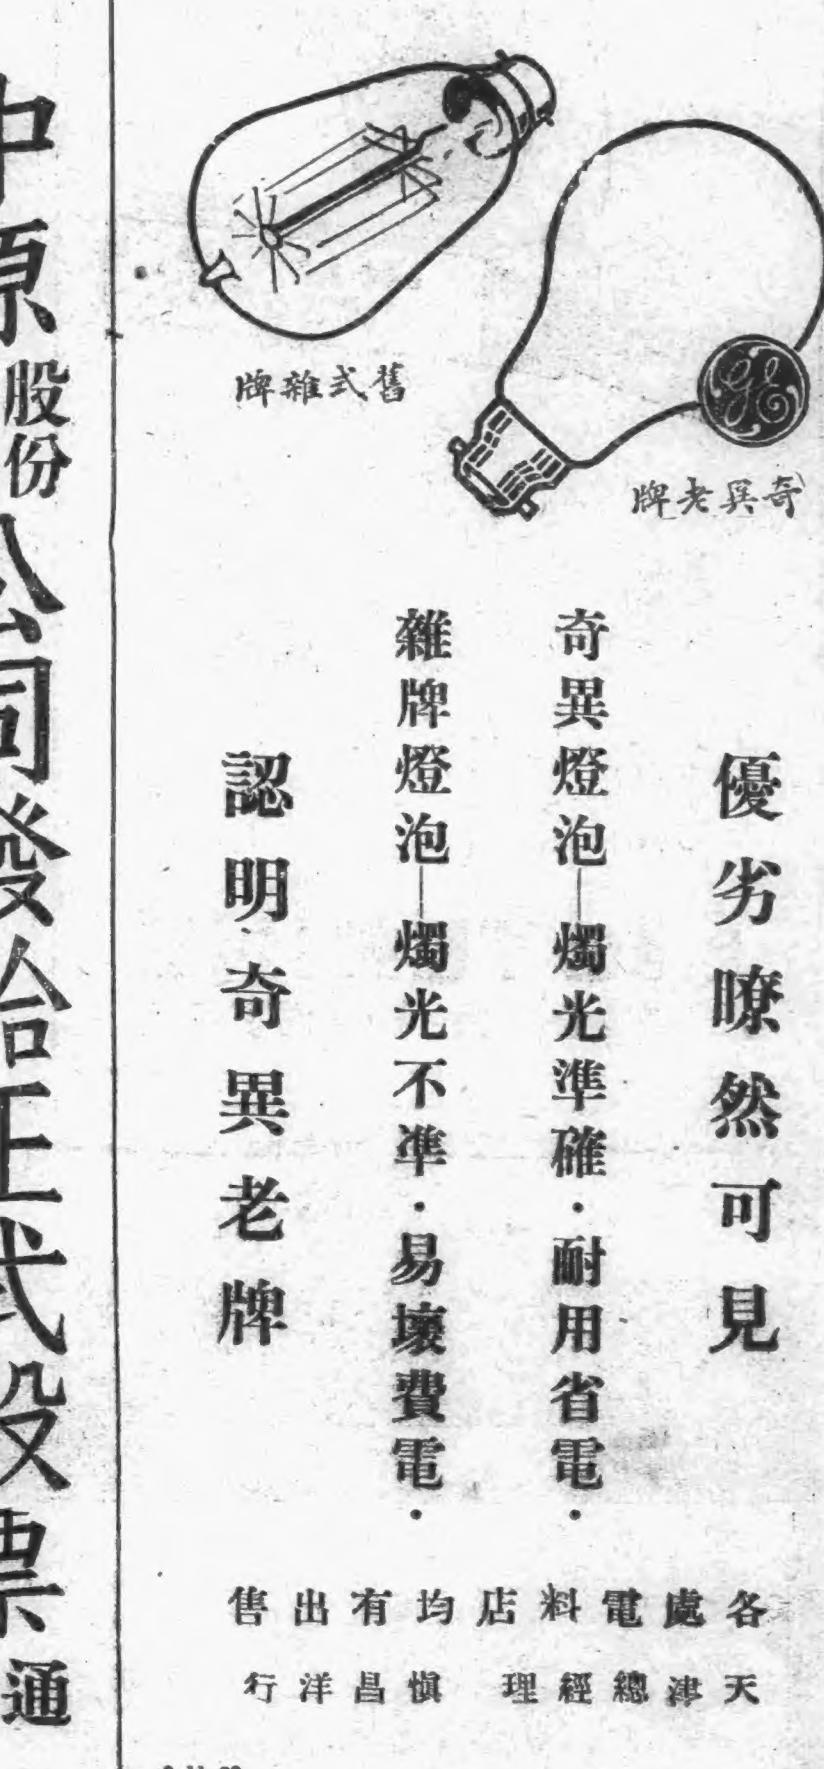 舊式雜牌
GE
奇異老牌
優劣瞭然可見
奇異燈泡—燭光準確·耐用省電·
雜牌燈泡—燭光不準·易壞費電·
認明奇異老牌
各處電料店均有出售
天津總經理 愼昌洋行
中原股份公司發給正式股票通